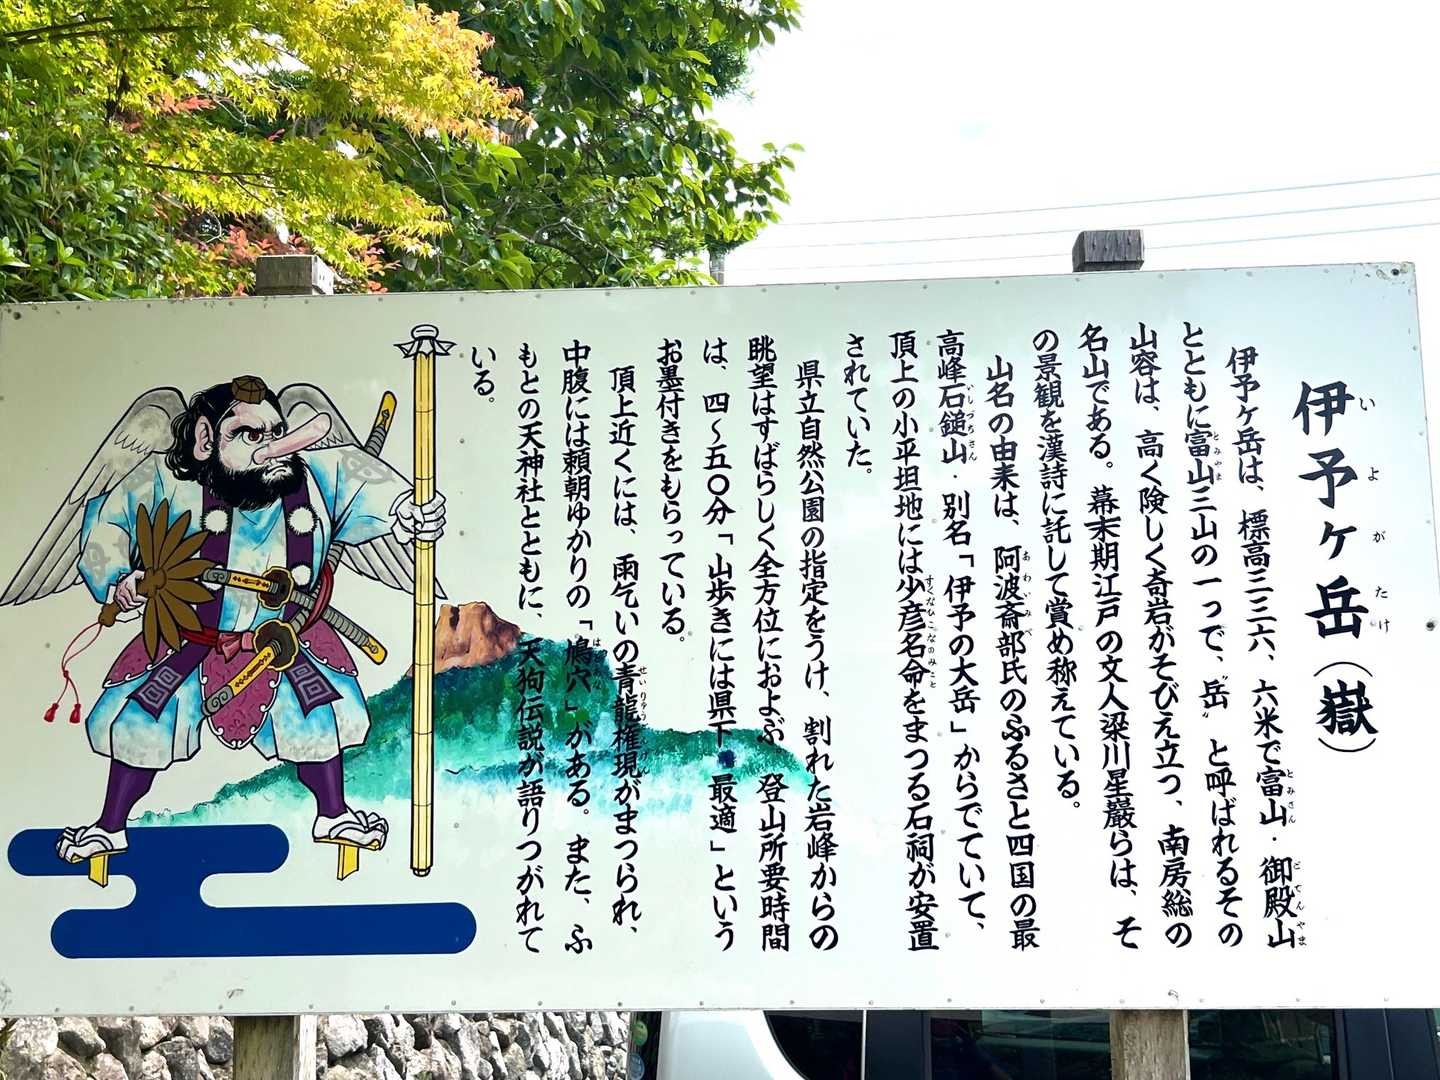 伊予ヶ岳（嶽）
いよがたけ
伊予ヶ岳は、標高三三六、六米で富山・御殿山
とみさん
ごてんやま
とともに富山三山の一つで、〝岳〟と呼ばれるその
とみやま
山容は、高く険しく奇岩がそびえ立つ、南房総の
名山である。幕末期江戸の文人梁川星巖らは、そ
の景観を漢詩に託して賞め称えている。
山名の由来は、阿波斎部氏のふるさと四国の最
あわいみべ
高峰石鎚山・別名「伊予の大岳」からでていて、
いしづちさん
頂上の小平坦地には少彦名命をまつる石祠が安置
すくなひこなのみこと
されていた。
県立自然公園の指定をうけ、割れた岩峰からの
眺望はすばらしく全方位におよぶ、登山所要時間
は、四〜五〇分「山歩きには県下・最適」という
お墨付きをもらっている。
頂上近くには、雨乞いの青龍権現がまつられ、
せいりゅうごんげん
中腹には頼朝ゆかりの「鳩穴」がある。また、ふ
はとあな
もとの天神社とともに、天狗伝説が語りつがれて
いる。